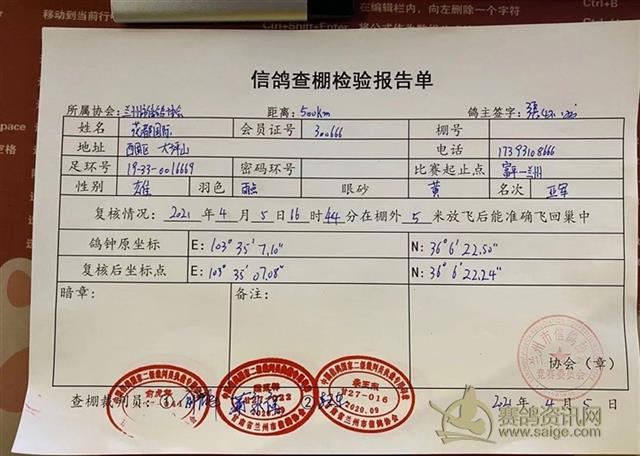 移动到当前行
在编辑栏内，向左删除一个字符
Ctrl+B
Ctrl+Shift+Enter
Ctrl+U
信鸽查棚检验报告单
所属协会: 兰州市信鸽协会 距离: 500km 鸽主签字:
姓名 花都国际 会员证号 300666 棚号
地址 西固区 大坪山 电话 17393108666
足环号 19-33-0016669 密码环号 比赛起止点 富平—兰州
性别 雄 羽色 雨点 眼砂 黄 名次 亚军
复核情况: 2021 年 4 月 5 日 16 时 44 分在棚外 5 米放飞后能准确飞回巢中
鸽钟原坐标 E: 103° 35′ 7.10″ N: 36° 6′ 22.50″
复核后坐标点 E: 103° 35′ 07.08″ N: 36° 6′ 22.24″
暗章: 备注:
兰州市信鸽协会
竞赛委员会
协会（章）
甘27-022
2020.09
甘肃省兰州市信鸽协会
甘27-016
2020.09
甘肃省兰州市信鸽协会
查棚裁判员: ① ②
2021 年 4 月 5 日
赛鸽资讯网
www.saige.com